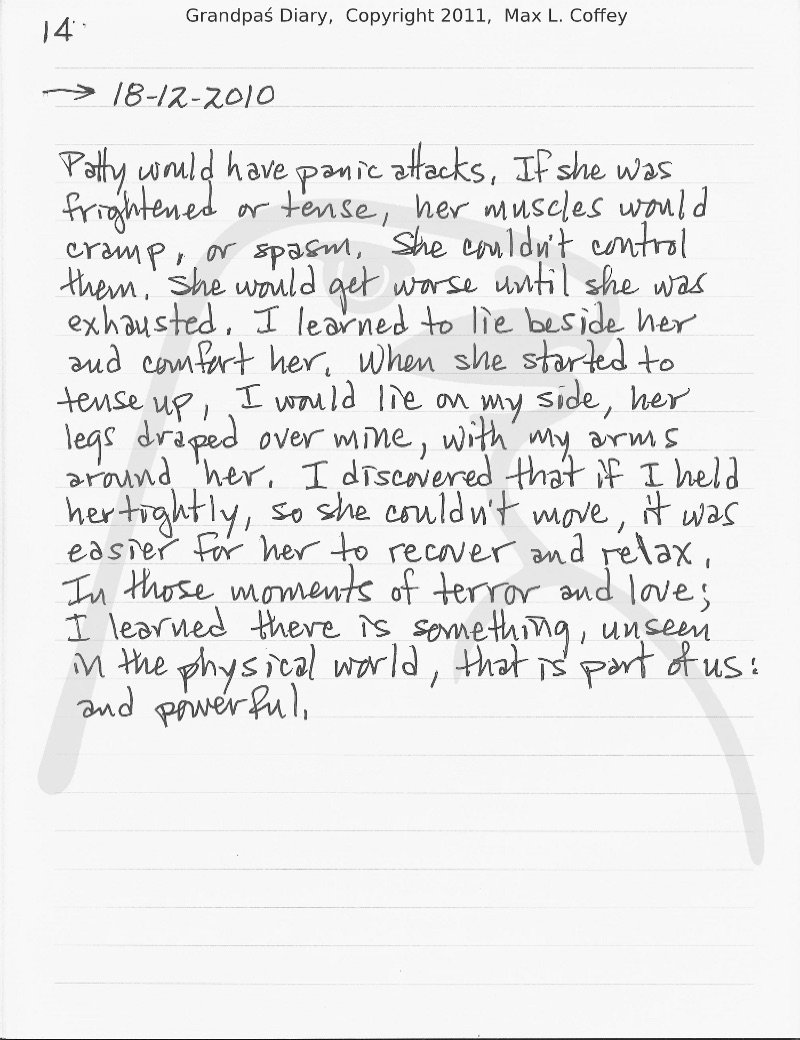 Grandpaś Diary, Copyright 2011, Max L. Coffey
14
→ 18-12-2010
Patty would have panic attacks. If she was
frightened or tense, her muscles would
cramp, or spasm. She couldn't control
them. She would get worse until she was
exhausted. I learned to lie beside her
and comfort her. When she started to
tense up, I would lie on my side, her
legs draped over mine, with my arms
around her. I discovered that if I held
her tightly, so she couldn't move, it was
easier for her to recover and relax.
In those moments of terror and love;
I learned there is something, unseen
in the physical world, that is part of us:
and powerful.